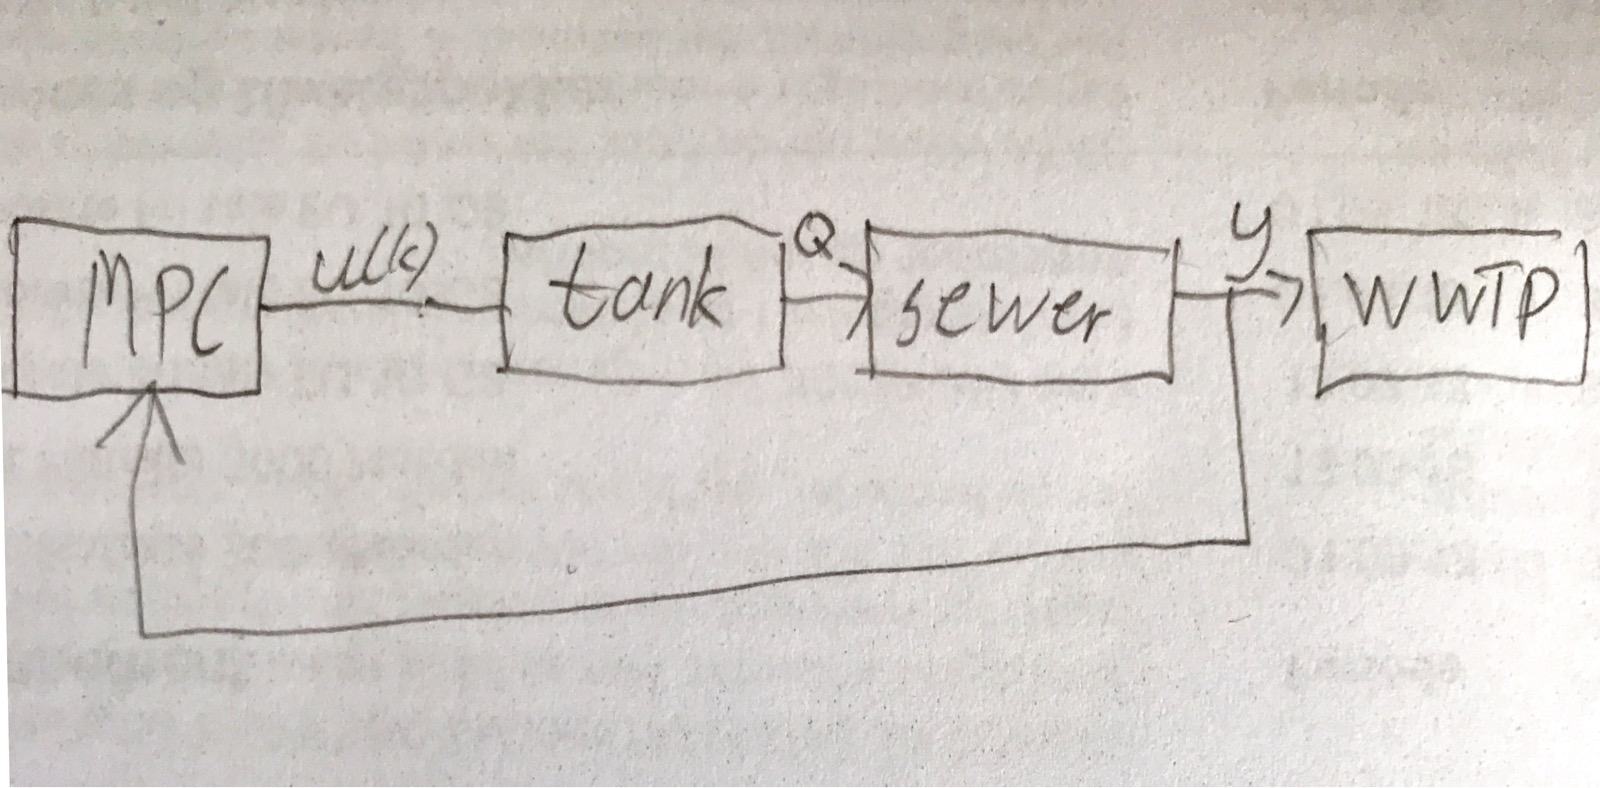 MPC u(k) tank Q sewer y WWTP